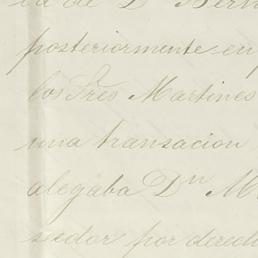 de Dn
posteriormente en
los Tres Martines
una transacion
alegaba Dn M
por derech